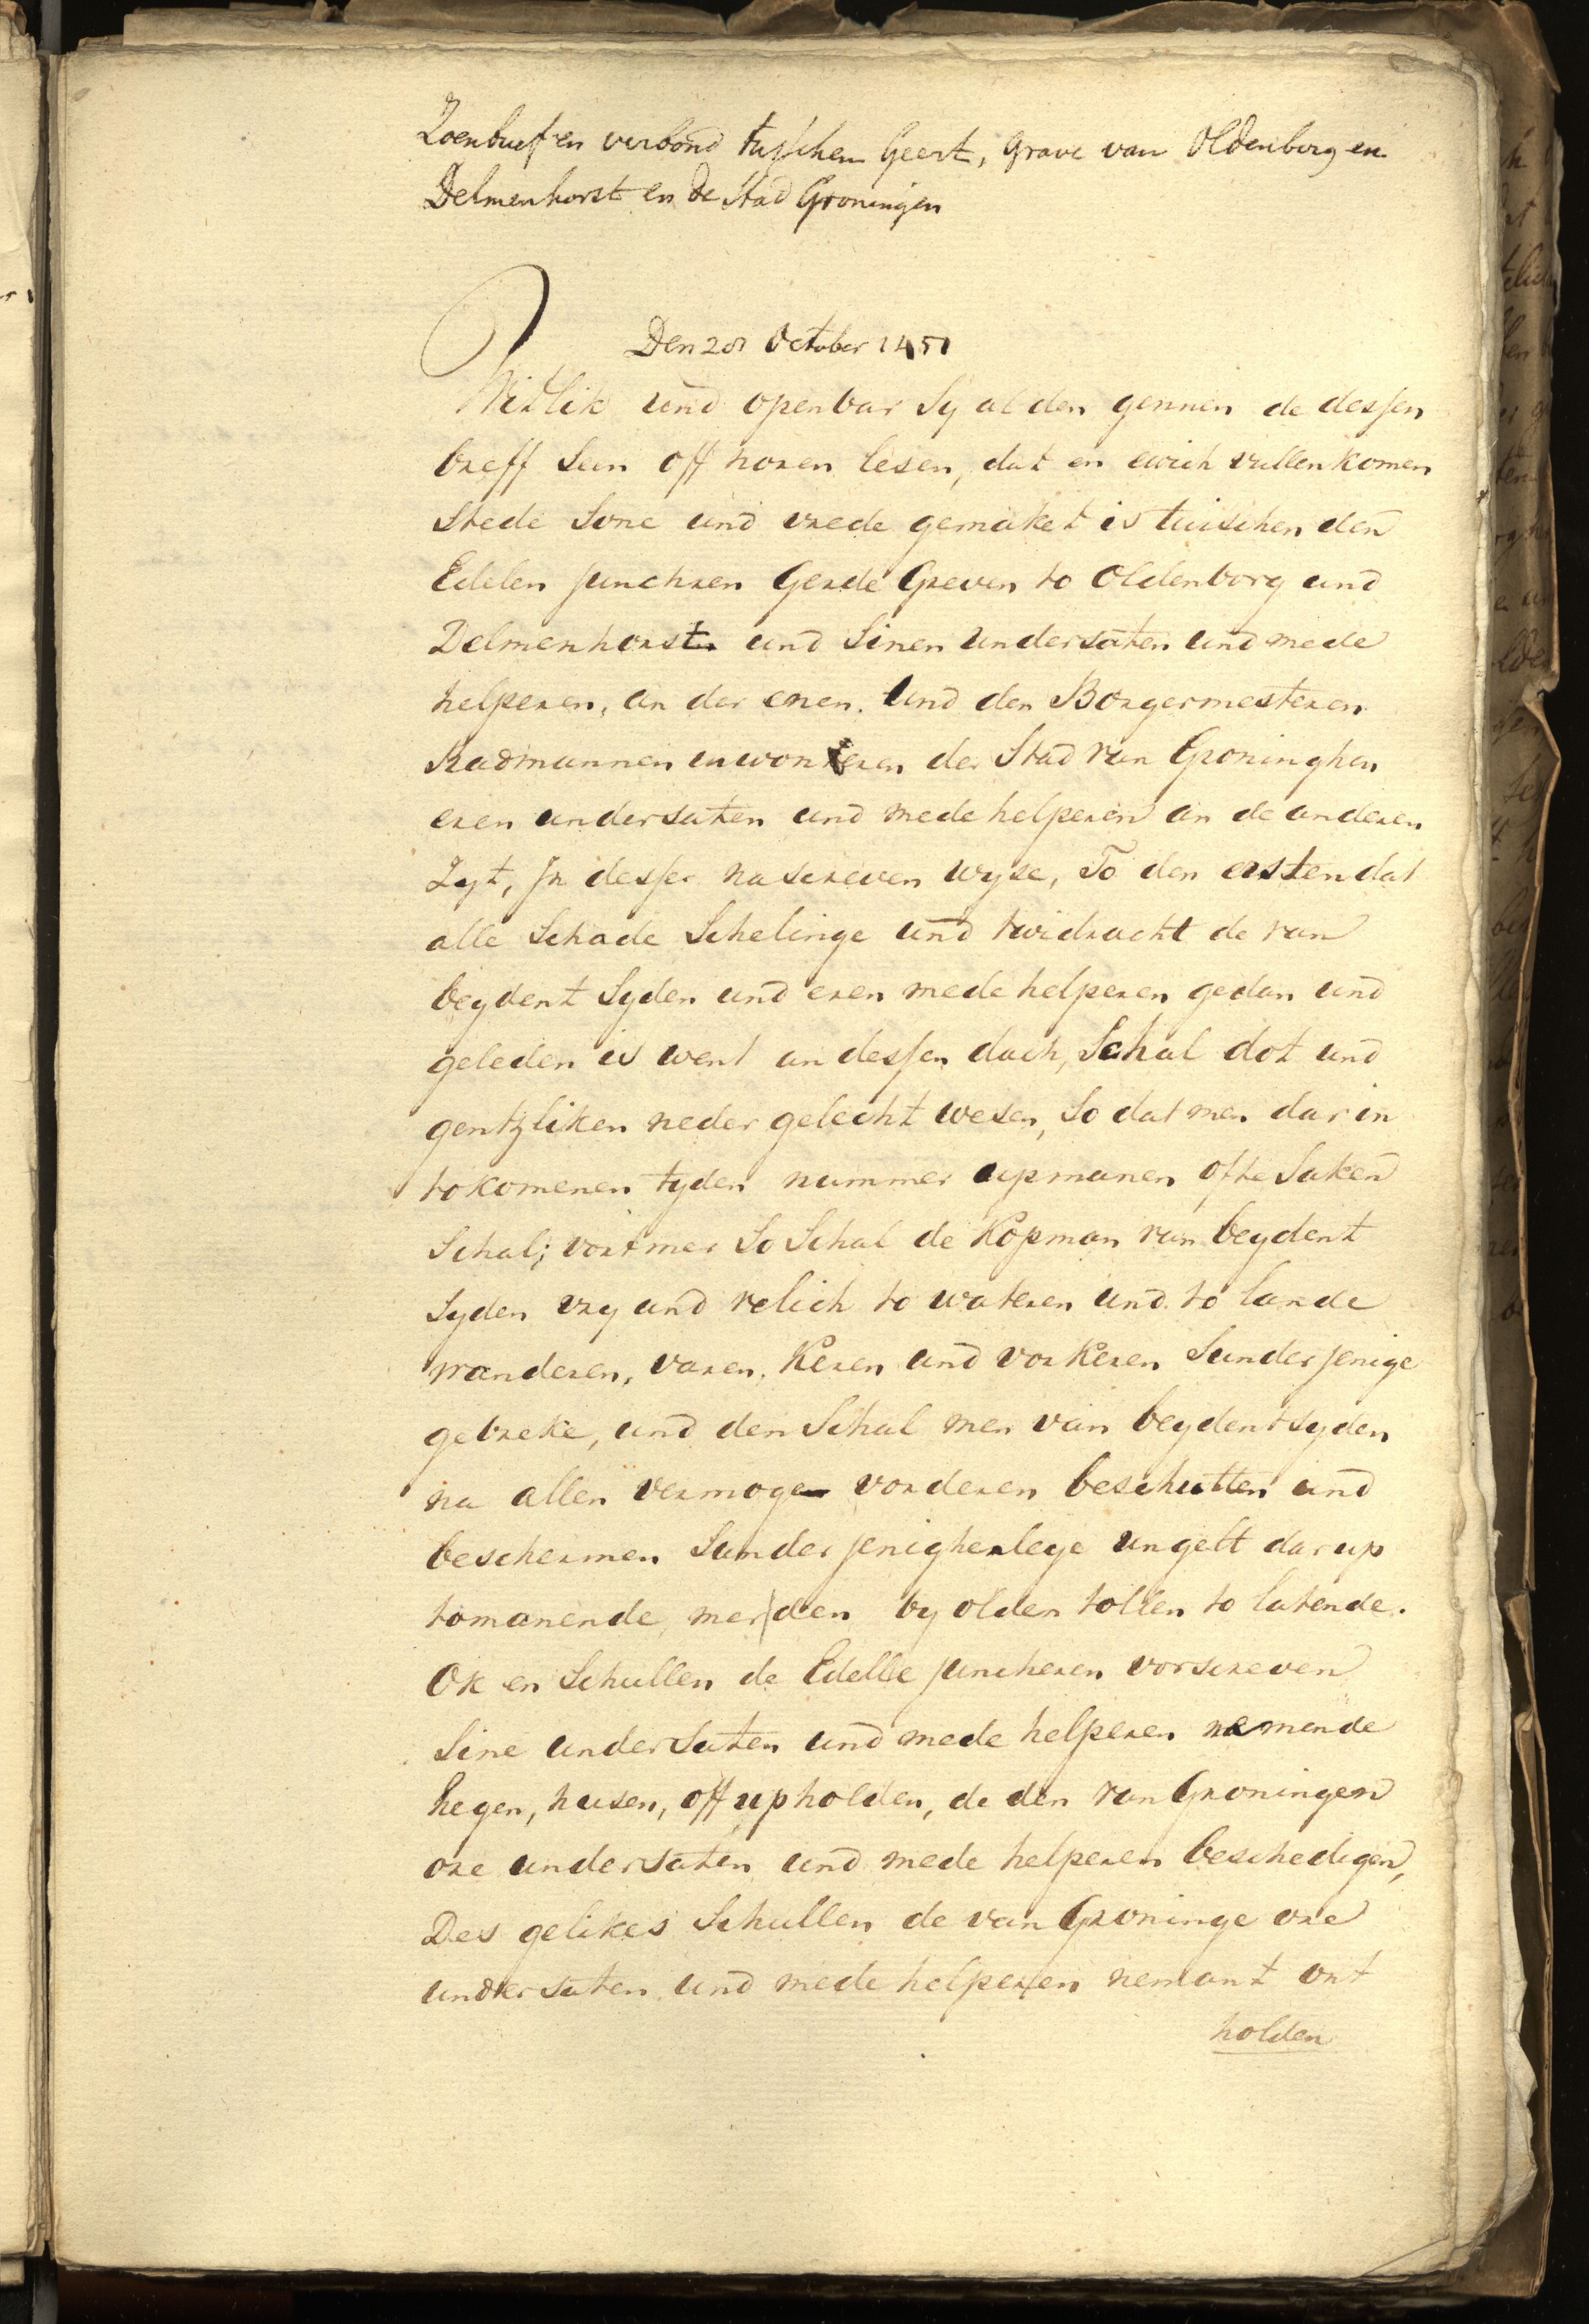 Zoenbrief en verbond tusschen Geert, Grave van Oldenborg en
Delmenhorst en de Stad Groningen
Den 20 October 1451
Witlik und openbar Sy al den gennen de dessen
breff Sein off horen lesen, dat en ewich vullenkomen
Stede Sone und vrede gemaket is tuischen den
Edelen Junchren Gerde Greven to Oldenborg und
Delmenhorst und Sinen undersaten und mede
helperen, an der enen. Und den Borgermesteren
Radmannen inwoneren der Stad van Groninghen
eren undersaten und mede helperen an de anderen
Zyt, In desser nascreven wyse, To den ersten dat
alle Schade Schelinge und twidracht de van
beydent Syden und eren mede helperen gedan und
geleden is went an dessen dach, Schal dot und
gentzliken neder gelecht wesen, So dat men dar in
tokomenen tyden nummer upmanen ofte Saken
Schal; vortmer So Schal de Kopman van beydent
Syden vry und velich to wateren und to lande
wanderen, varen, Keren und vorkeren Sunder jenige
gebreke, und den Schal men van beydent syden
na allen vermoge vorderen beschutten und
beschermen Sunder jenigherleye ungelt dar up
tomanende, mer den by olden tollen to latende.
Ok en Schullen de Edelle Juncheren vorscreven
Sine underSaten und mede helperen nemende
hegen, husen, off upholden, de den van Groningen
ore undersaten und mede helperen beschedigen,
Des gelikes Schullen de van Groninge ore
undersaten und mede helperen nemant ont
holden